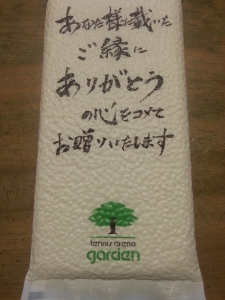 あなた様に戴いた
ご縁に
ありがとう
の心をコメて
お贈りいたします
tennis arena
garden